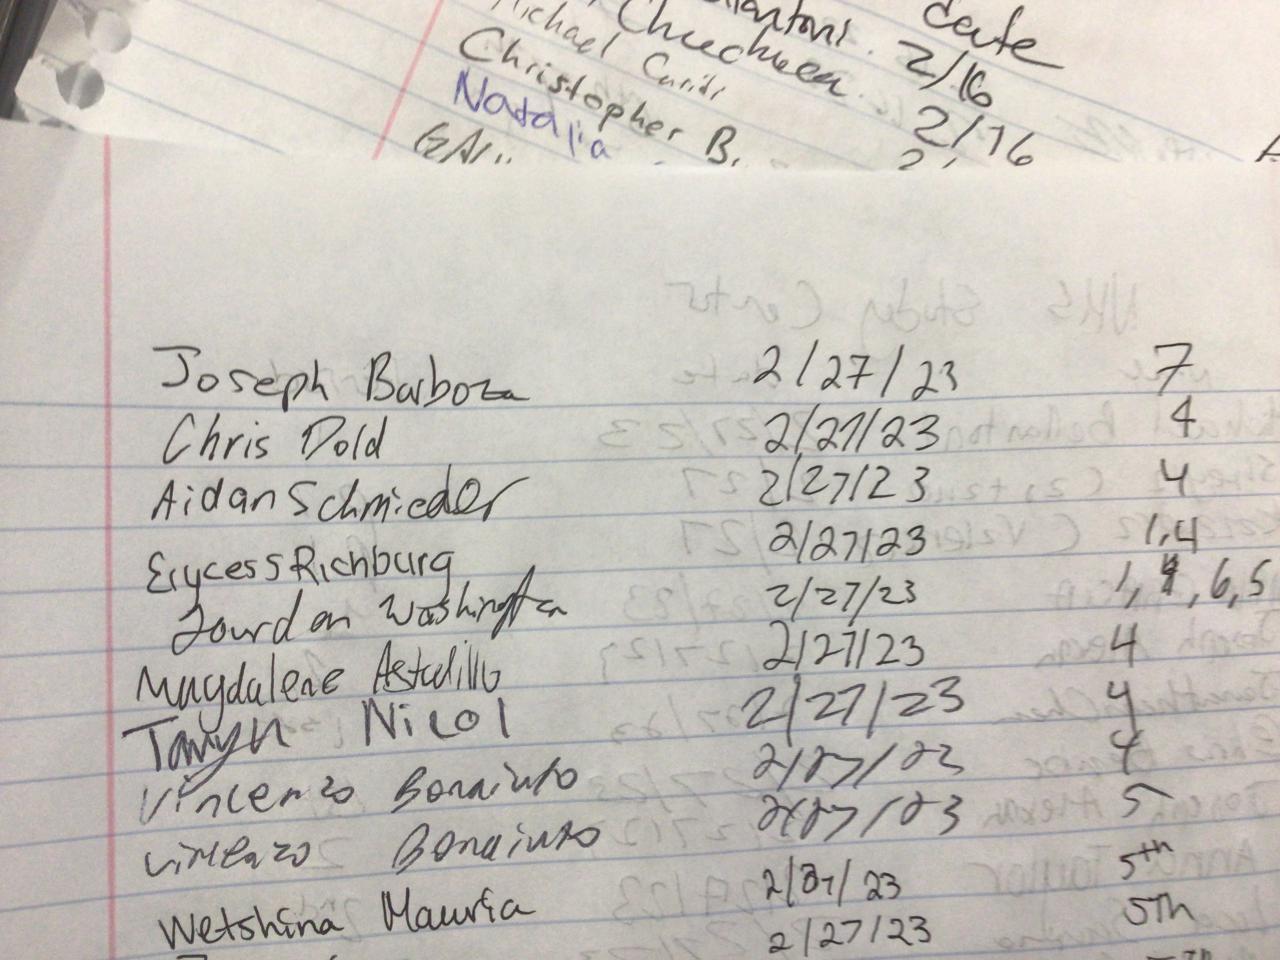 date
Chuchuca 2/16
Michael Curidi
Christopher B. 2/16
Natalia
Joseph Barboza 2/27/23 7
Chris Dold 2/27/23 4
Aidan Schmieder 2/27/23 4
Erycess Richburg 2/27/23 1,4
Jourdan Washington 2/27/23 1, 4, 6, 5
Magdalene Astudillo 2/27/23 4
Taryn Nicol 2/27/23 4
Vincenzo Bonaiuto 2/27/23 4
Vincenzo Bonaiuto 2/27/23 5
Wetshina Mauria 2/27/23 5th
2/27/23 5th